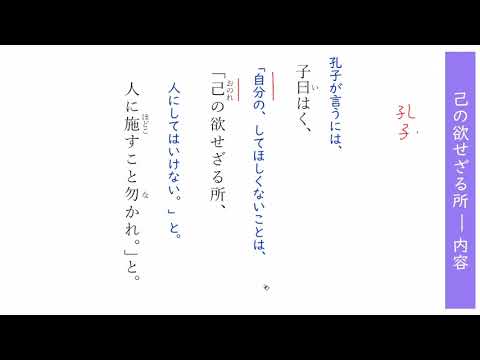 己の欲せざる所 ― 内容
孔子
孔子が言うには、
子曰はく、
い
「自分の、してほしくないことは、
「己の欲せざる所、
おのれ
人にしてはいけない。」と。
人に施すこと勿かれ。」と。
ほどこ
な